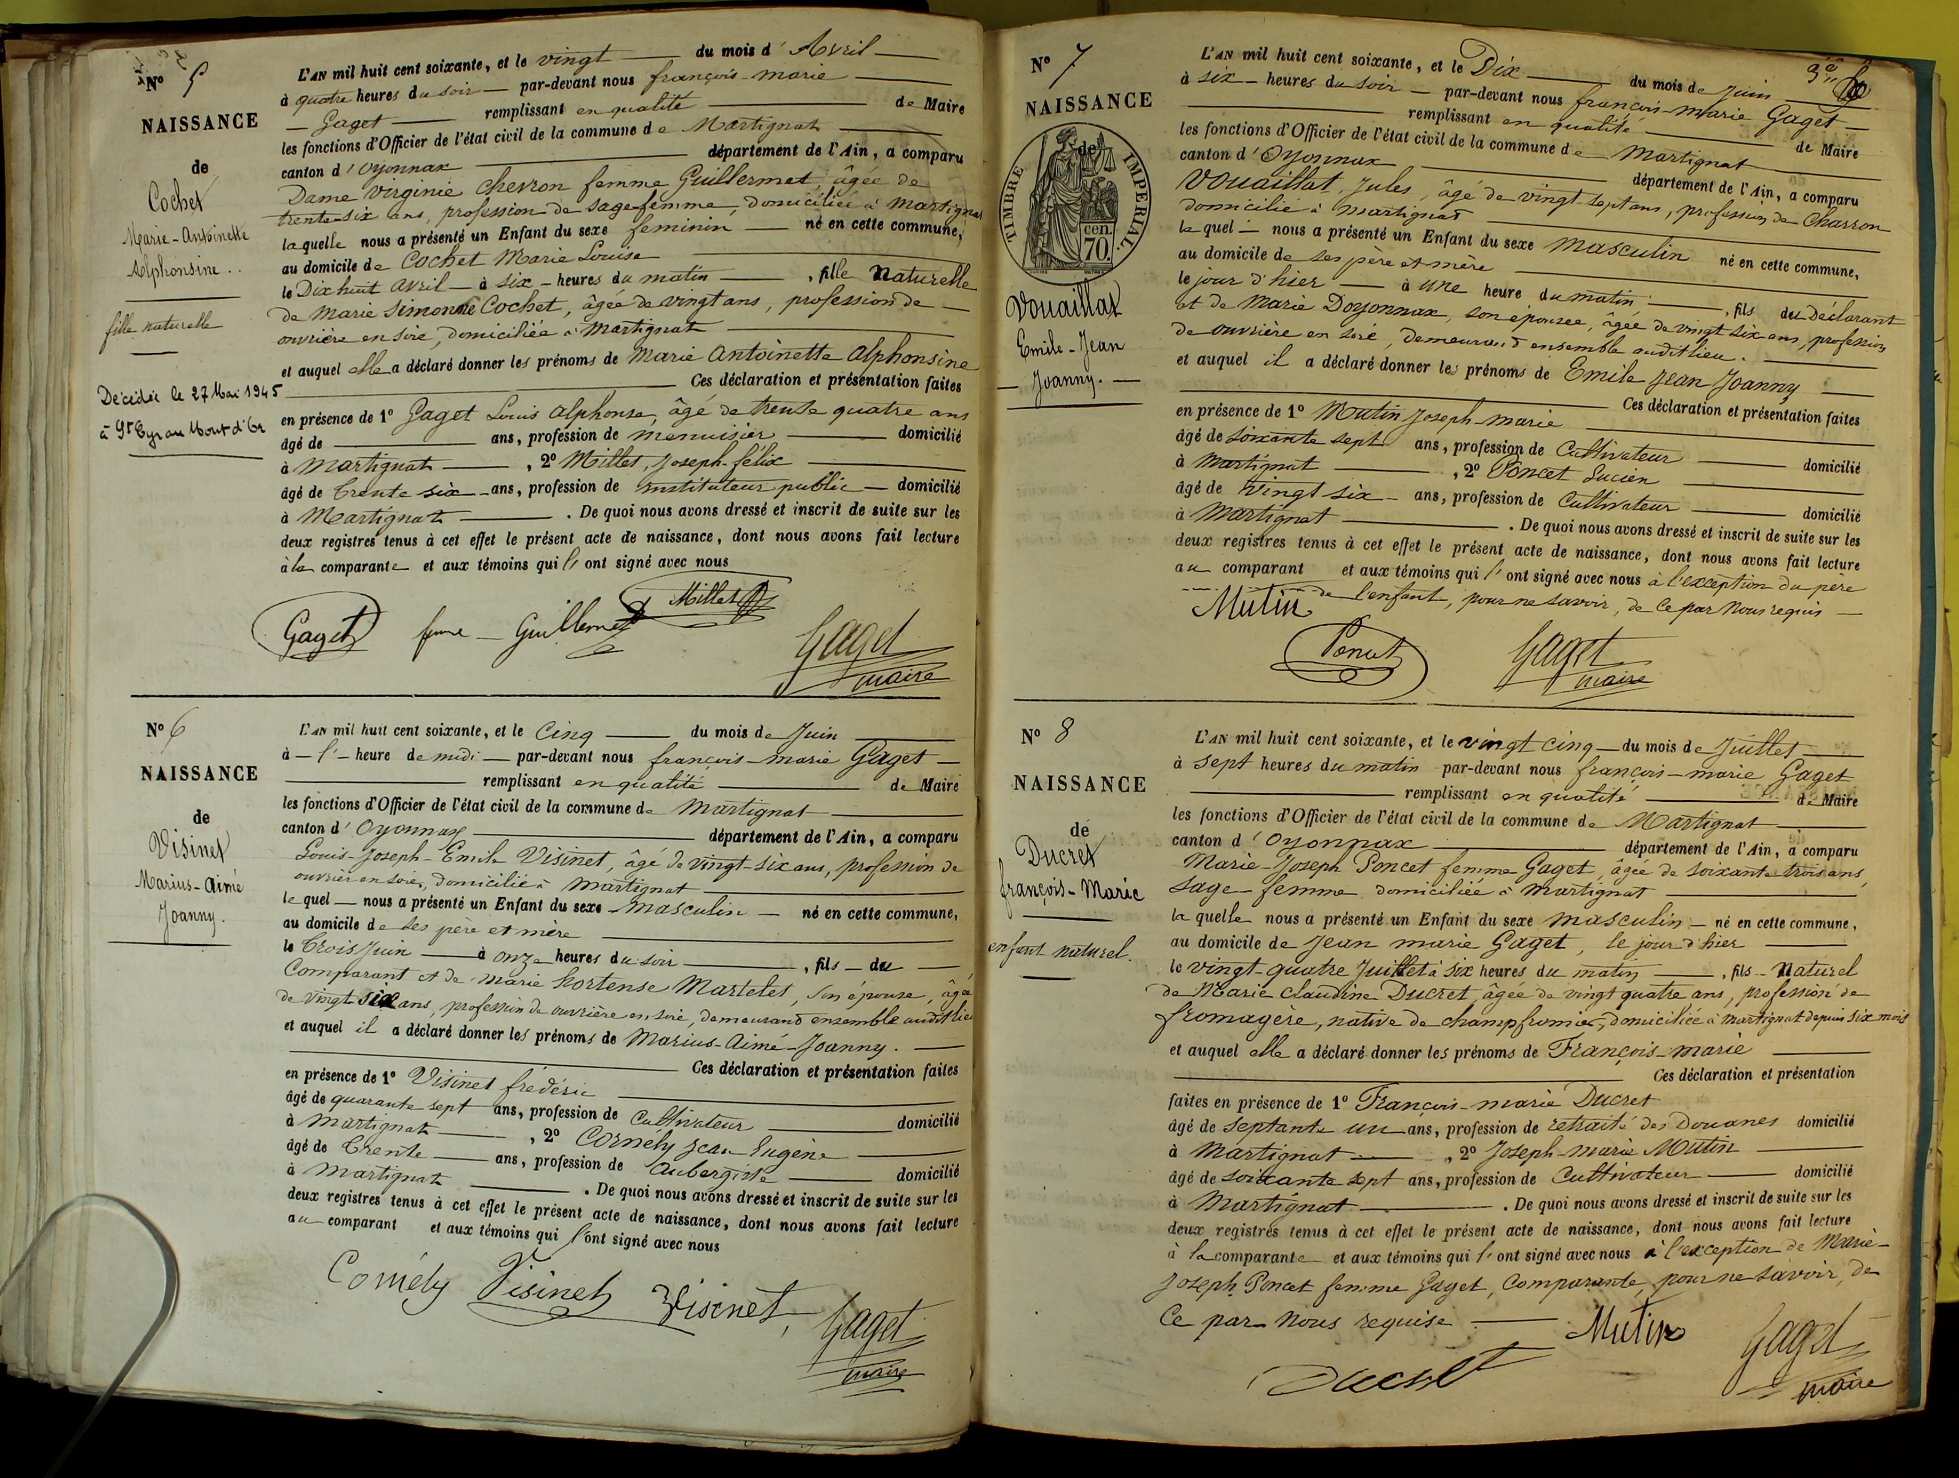 N° 5
NAISSANCE
de
Cochet
Marie-Antoinette
Alphonsine.
fille naturelle
Décédée le 27 Mai 1945
à St Cyr au Mont d'Or
L'AN mil huit cent soixante, et le vingt du mois d'Avril
à quatre heures du soir par-devant nous françois-marie
Gaget remplissant en qualité de Maire
les fonctions d'Officier de l'état civil de la commune de Martignat
canton d'Oyonnax département de l'Ain, a comparu
Dame Virginie Chevron femme Guillermet âgée de
trente-six ans, profession de sage femme, domiciliée à Martignat
laquelle nous a présenté un Enfant du sexe feminin né en cette commune,
au domicile de Cochet Marie Louise
le Dixhuit avril à six heures du matin, fille Naturelle
de Marie Simonne Cochet, âgée de vingt ans, profession de
ouvrière en soie, domiciliée à Martignat
et auquel elle a déclaré donner les prénoms de Marie Antoinette Alphonsine
Ces déclaration et présentation faites
en présence de 1° Gaget Louis Alphonse, âgé de trente quatre ans
âgé de ans, profession de menuisier domicilié
à Martignat, 2° Millet, Joseph-félix
âgé de Trente six ans, profession de instituteur public domicilié
à Martignat. De quoi nous avons dressé et inscrit de suite sur les
deux registres tenus à cet effet le présent acte de naissance, dont nous avons fait lecture
à la comparante et aux témoins qui l'ont signé avec nous
Millet
Gaget femme Guillermet Gaget
maire
N° 6
NAISSANCE
de
Visinet
Marius-Aimé
Joanny.
L'AN mil huit cent soixante, et le cinq du mois de Juin
à l'heure de midi par-devant nous françois-marie Gaget
remplissant en qualité de Maire
les fonctions d'Officier de l'état civil de la commune de Martignat
canton d'Oyonnax département de l'Ain, a comparu
Louis-Joseph-Emile Visinet, âgé de vingt-six ans, profession de
ouvrier en soie, domicilié à Martignat
lequel nous a présenté un Enfant du sexe masculin né en cette commune,
au domicile de ses père et mère
le Trois Juin à onze heures du soir, fils du
Comparant et de Marie Hortense Martelet, son épouse, âgée
de vingt six ans, profession de ouvrière en soie, demeurant ensemble audit lieu
et auquel il a déclaré donner les prénoms de Marius-Aimé-Joanny.
Ces déclaration et présentation faites
en présence de 1° Visinet frédéric
âgé de quarante sept ans, profession de Cultivateur domicilié
à Martignat, 2° Cornély Jean Eugène
âgé de Trente ans, profession de Aubergiste domicilié
à Martignat. De quoi nous avons dressé et inscrit de suite sur les
deux registres tenus à cet effet le présent acte de naissance, dont nous avons fait lecture
au comparant et aux témoins qui l'ont signé avec nous
Cornély Visinet Visinet, Gaget
maire
N° 7
NAISSANCE
de
TIMBRE IMPERIAL.
cen.
70.
Vouaillat
Emile-Jean
Joanny.
L'AN mil huit cent soixante, et le Dix du mois de Juin
à six heures du soir par-devant nous françois-marie Gaget
remplissant en qualité de Maire
les fonctions d'Officier de l'état civil de la commune de Martignat
canton d'Oyonnax département de l'Ain, a comparu
Vouaillat, Jules, âgé de vingt sept ans, profession de Charron
domicilié à Martignat
lequel nous a présenté un Enfant du sexe Masculin né en cette commune,
au domicile de ses père et mère
le jour d'hier à une heure du matin, fils du Déclarant
et de Marie Doyonnax, son epousee, âgée de vingt six ans, profession
de ouvrière en soie, demeurant ensemble audit lieu.
et auquel il a déclaré donner les prénoms de Emile Jean Joanny
Ces déclaration et présentation faites
en présence de 1° Mutin Joseph-marie
âgé de soixante sept ans, profession de Cultivateur domicilié
à Martignat, 2° Poncet Lucien
âgé de vingt six ans, profession de Cultivateur domicilié
à Martignat. De quoi nous avons dressé et inscrit de suite sur les
deux registres tenus à cet effet le présent acte de naissance, dont nous avons fait lecture
au comparant et aux témoins qui l'ont signé avec nous à l'exception du père
de l'enfant, pour ne savoir, de ce par Nous requis
Mutin
Poncet Gaget
maire
N° 8
NAISSANCE
de
Ducret
françois-Marie
enfant naturel.
L'AN mil huit cent soixante, et le vingt cinq du mois de Juillet
à sept heures du matin par-devant nous françois-marie Gaget
remplissant en qualité de Maire
les fonctions d'Officier de l'état civil de la commune de Martignat
canton d'Oyonnax département de l'Ain, a comparu
Marie-Joseph Poncet femme Gaget, âgée de soixante trois ans,
sage-femme domiciliée à Martignat
laquelle nous a présenté un Enfant du sexe masculin né en cette commune,
au domicile de Jean marie Gaget, le jour d'hier
le vingt-quatre Juillet à six heures du matin, fils Naturel
de Marie Claudine Ducret, âgée de vingt quatre ans, profession de
fromagère, native de champfromier, domiciliée à Martignat depuis six mois
et auquel elle a déclaré donner les prénoms de François-marie
Ces déclaration et présentation
faites en présence de 1° François-marie Ducret
âgé de Septante un ans, profession de retraité des Douanes domicilié
à Martignat, 2° Joseph-marie Mutin
âgé de soixante sept ans, profession de Cultivateur domicilié
à Martignat. De quoi nous avons dressé et inscrit de suite sur les
deux registres tenus à cet effet le présent acte de naissance, dont nous avons fait lecture
à la comparante et aux témoins qui l'ont signé avec nous à l'exception de Marie-
Joseph Poncet femme Gaget, comparante, pour ne savoir, de
Ce par Nous requise
Mutin
Ducret Gaget
maire